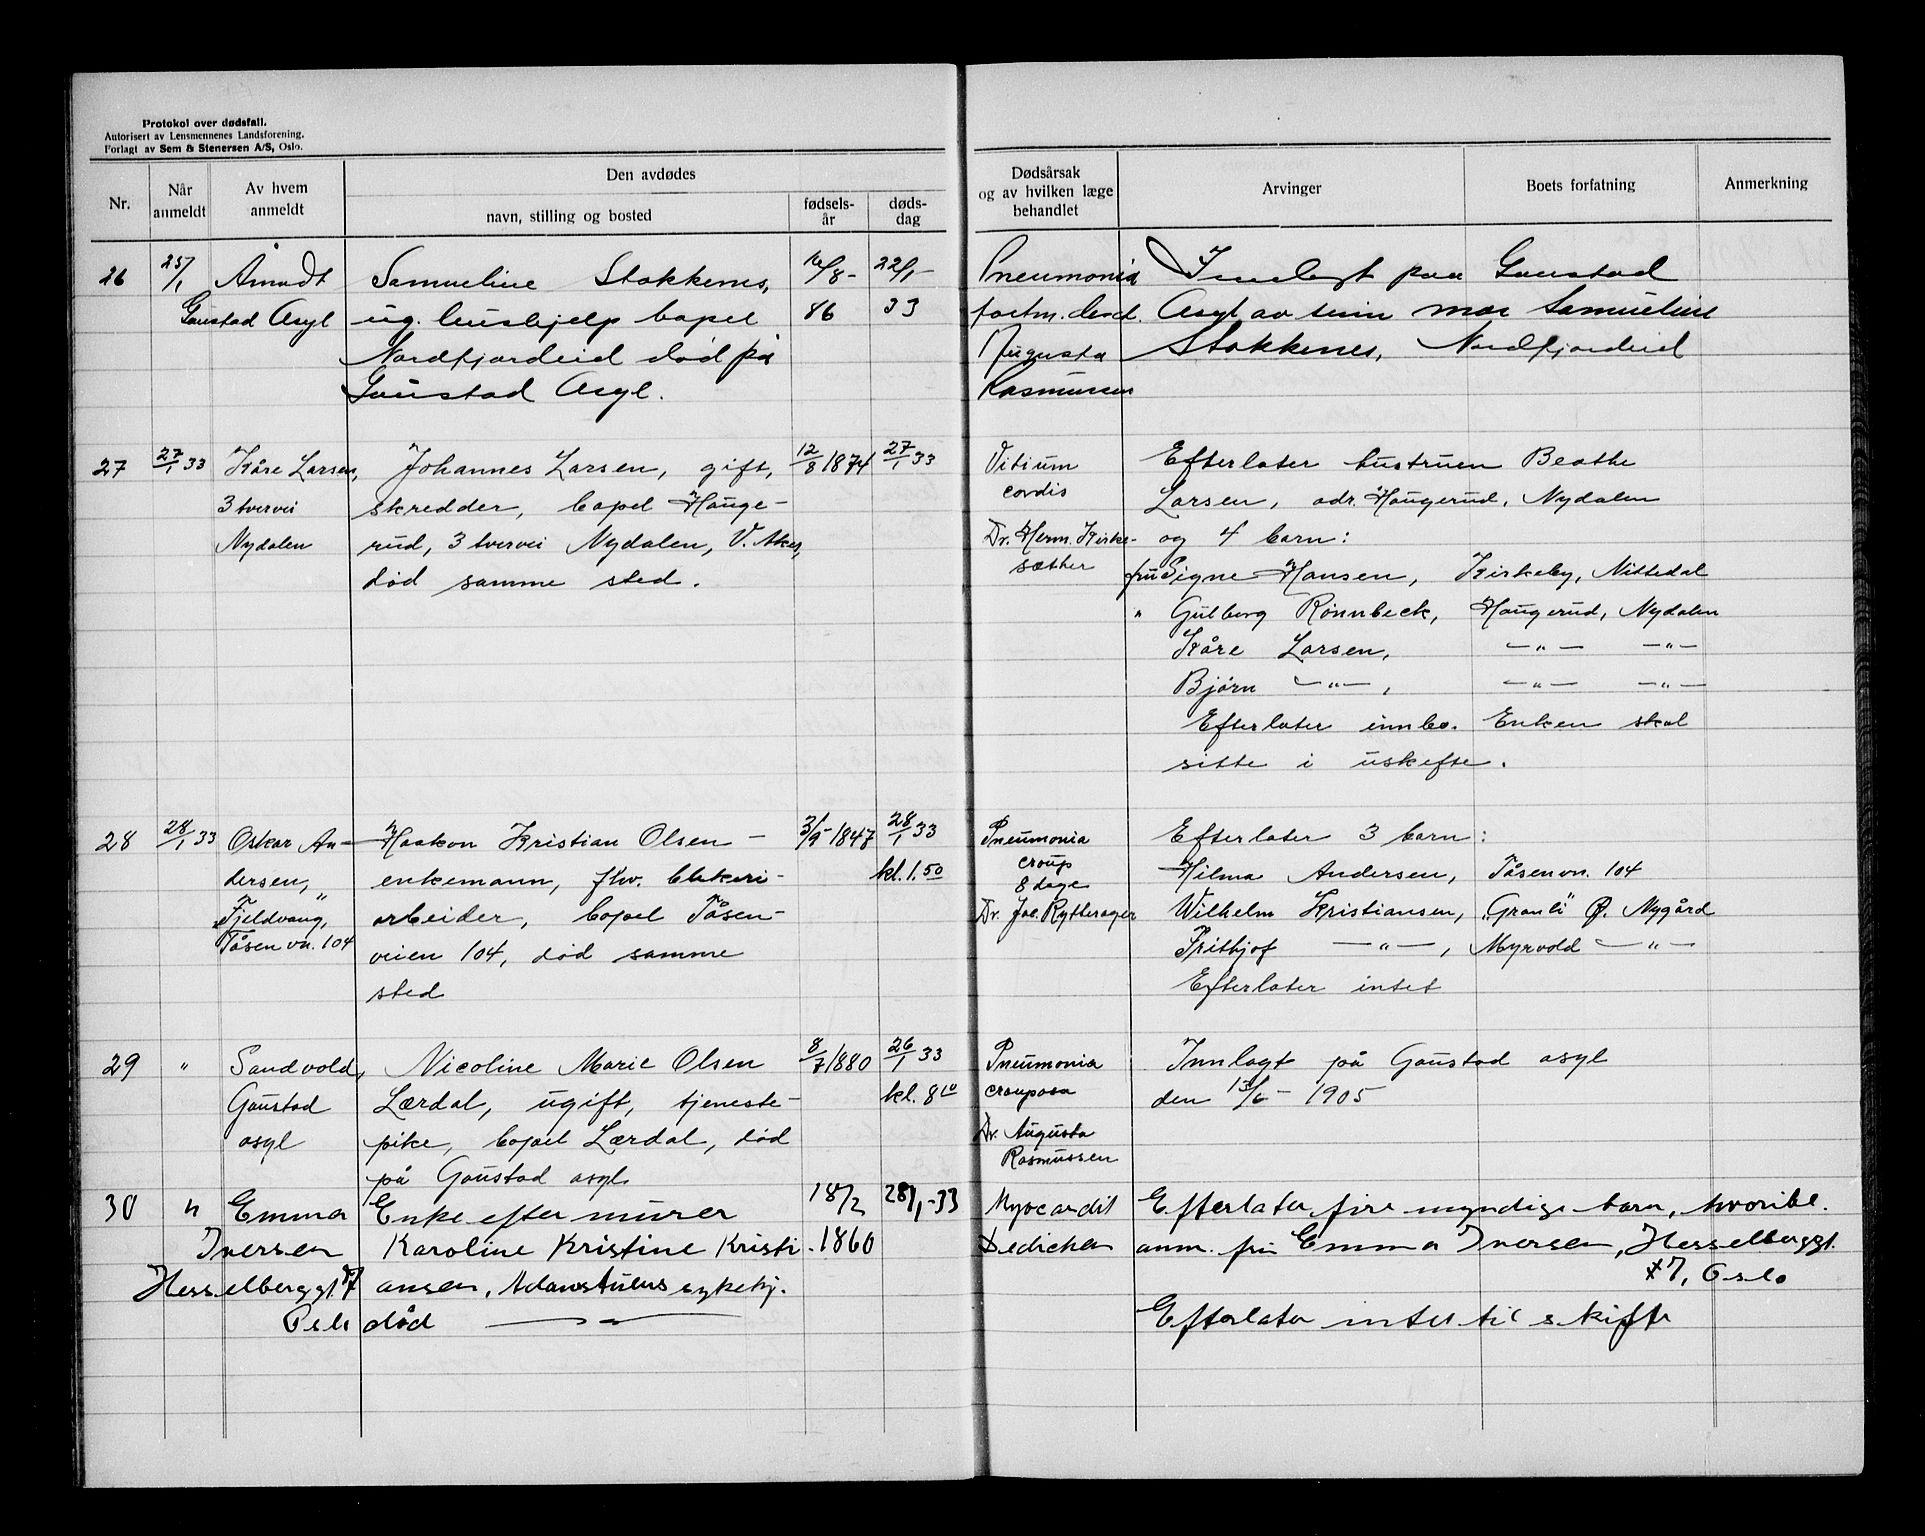 Protokol over dødsfall.
Autorisert av Lensmennenes Landsforening.
Forlagt av Sem & Stenersen A/S, Oslo.
Nr.
Når anmeldt
Av hvem anmeldt
Den avdødes
navn, stilling og bosted
fødsels-år
døds-dag
Dødsårsak og av hvilken læge behandlet
Arvinger
Boets forfatning
Anmerkning
26 25/1
Gaustad Asyl
Samueline Stokkenes,
ug. hushjelp bopel
Nordfjordeid død på
Gaustad Asyl.
/8-
86
22/1-
33
Pneumonia
Augusta
Rasmussen
Innlagt paa Gaustad
Asyl av sin mor Samueline
Stokkenes, Nordfjordeid
27 27/1 33
Kåre Larsen,
3 tvervei
Nydalen
Johannes Larsen, gift,
skredder, bopel Hauge-
rud, 3 tvervei Nydalen, V. Aker,
død samme sted.
12/8 1874
27/1 33
Vitium
cordis
Dr. Herm. Kirke-
sæther
Efterlater hustruen Beathe
Larsen, adr. Haugerud, Nydalen
og 4 barn:
fru Signe Hansen, Kirkeby, Nittedal
" Gulborg Rønnbeck, Haugerud, Nydalen
Kåre Larsen, —"— —"—
Bjørn —"—, —"— —"—
Efterlater innbo. Enken skal
sitte i uskifte.
28 28/1 33
Oskar An-
dersen,
"Fjeldvang,
Tåsenvn. 104
Haakon Kristian Olsen -
enkemann, fhv. blikeri-
arbeider, bopel Tåsen-
veien 104, død samme
sted
3/9 1847
28/1 33
kl. 1.50
Pneumonia
croup
8 dage
Dr. Jac. Rytterager
Efterlater 3 barn:
Hilma Andersen, Tåsenvn. 104
Wilhelm Kristiansen, "Granli" Ø. Nygård
Frithjof —"—, Myrvold —"—
Efterlater intet
29 "
Sandvold,
Gaustad
asyl
Nicoline Marie Olsen
Lærdal, ugift, tjeneste-
pike, bopel Lærdal, død
på Gaustad asyl
8/7 1880
26/1 33
kl. 8 10
Pneumonia
crouposa
Dr. Augusta
Rasmussen
Innlagt på Gaustad asyl
den 13/6 - 1905
30 "
Emma
Iversen
Hesselberggt. 7
Oslo
Enke efter murer
Karoline Kristine Kristi-
ansen, Adamstuens sykehj.
død —"—
18/2
1860
28/1-33
Myocardit
Dedichen
Efterlater fire myndige barn, hvoribl.
anm. fru Emma Iversen, Hesselberggt.
7, Oslo
Efterlater intet til skifte